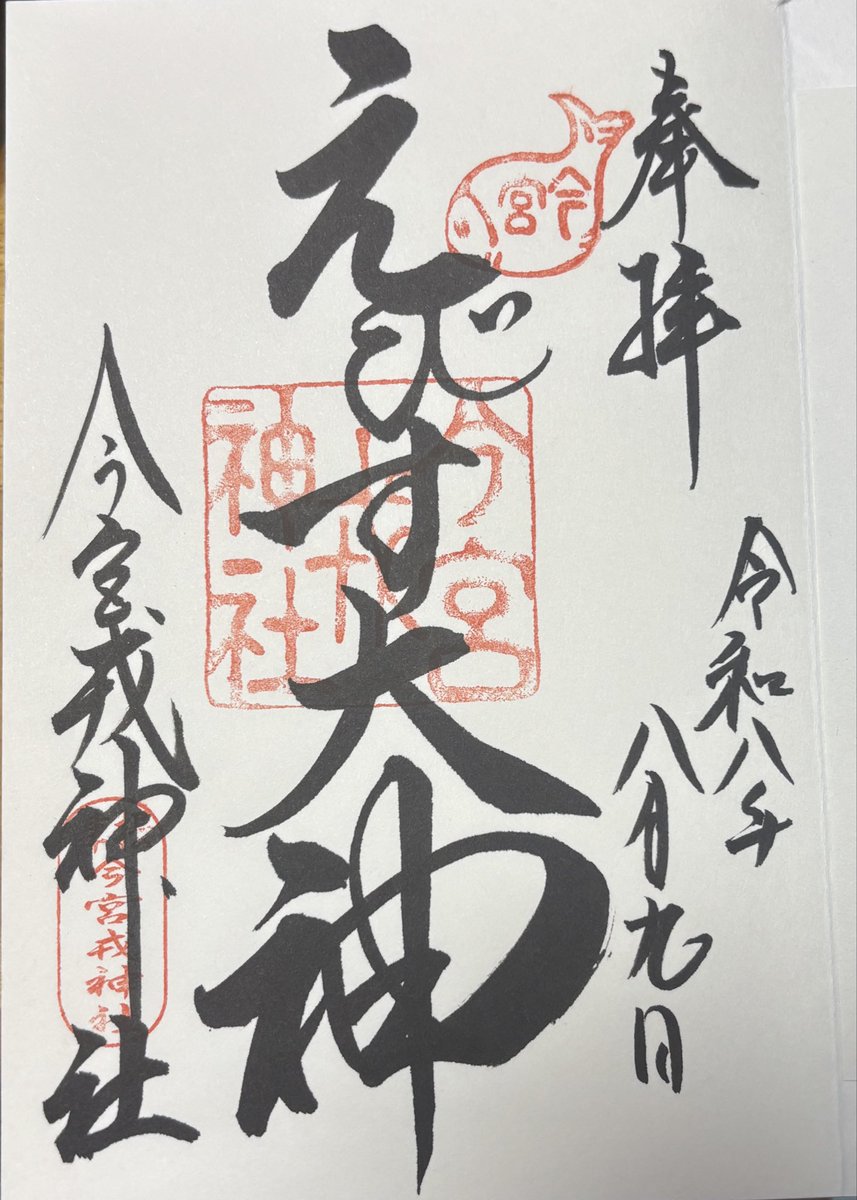 奉拝
令和八年
八月九日
今宮
えびす大神
今宮
戎
神社
今宮戎神社
今宮戎神社